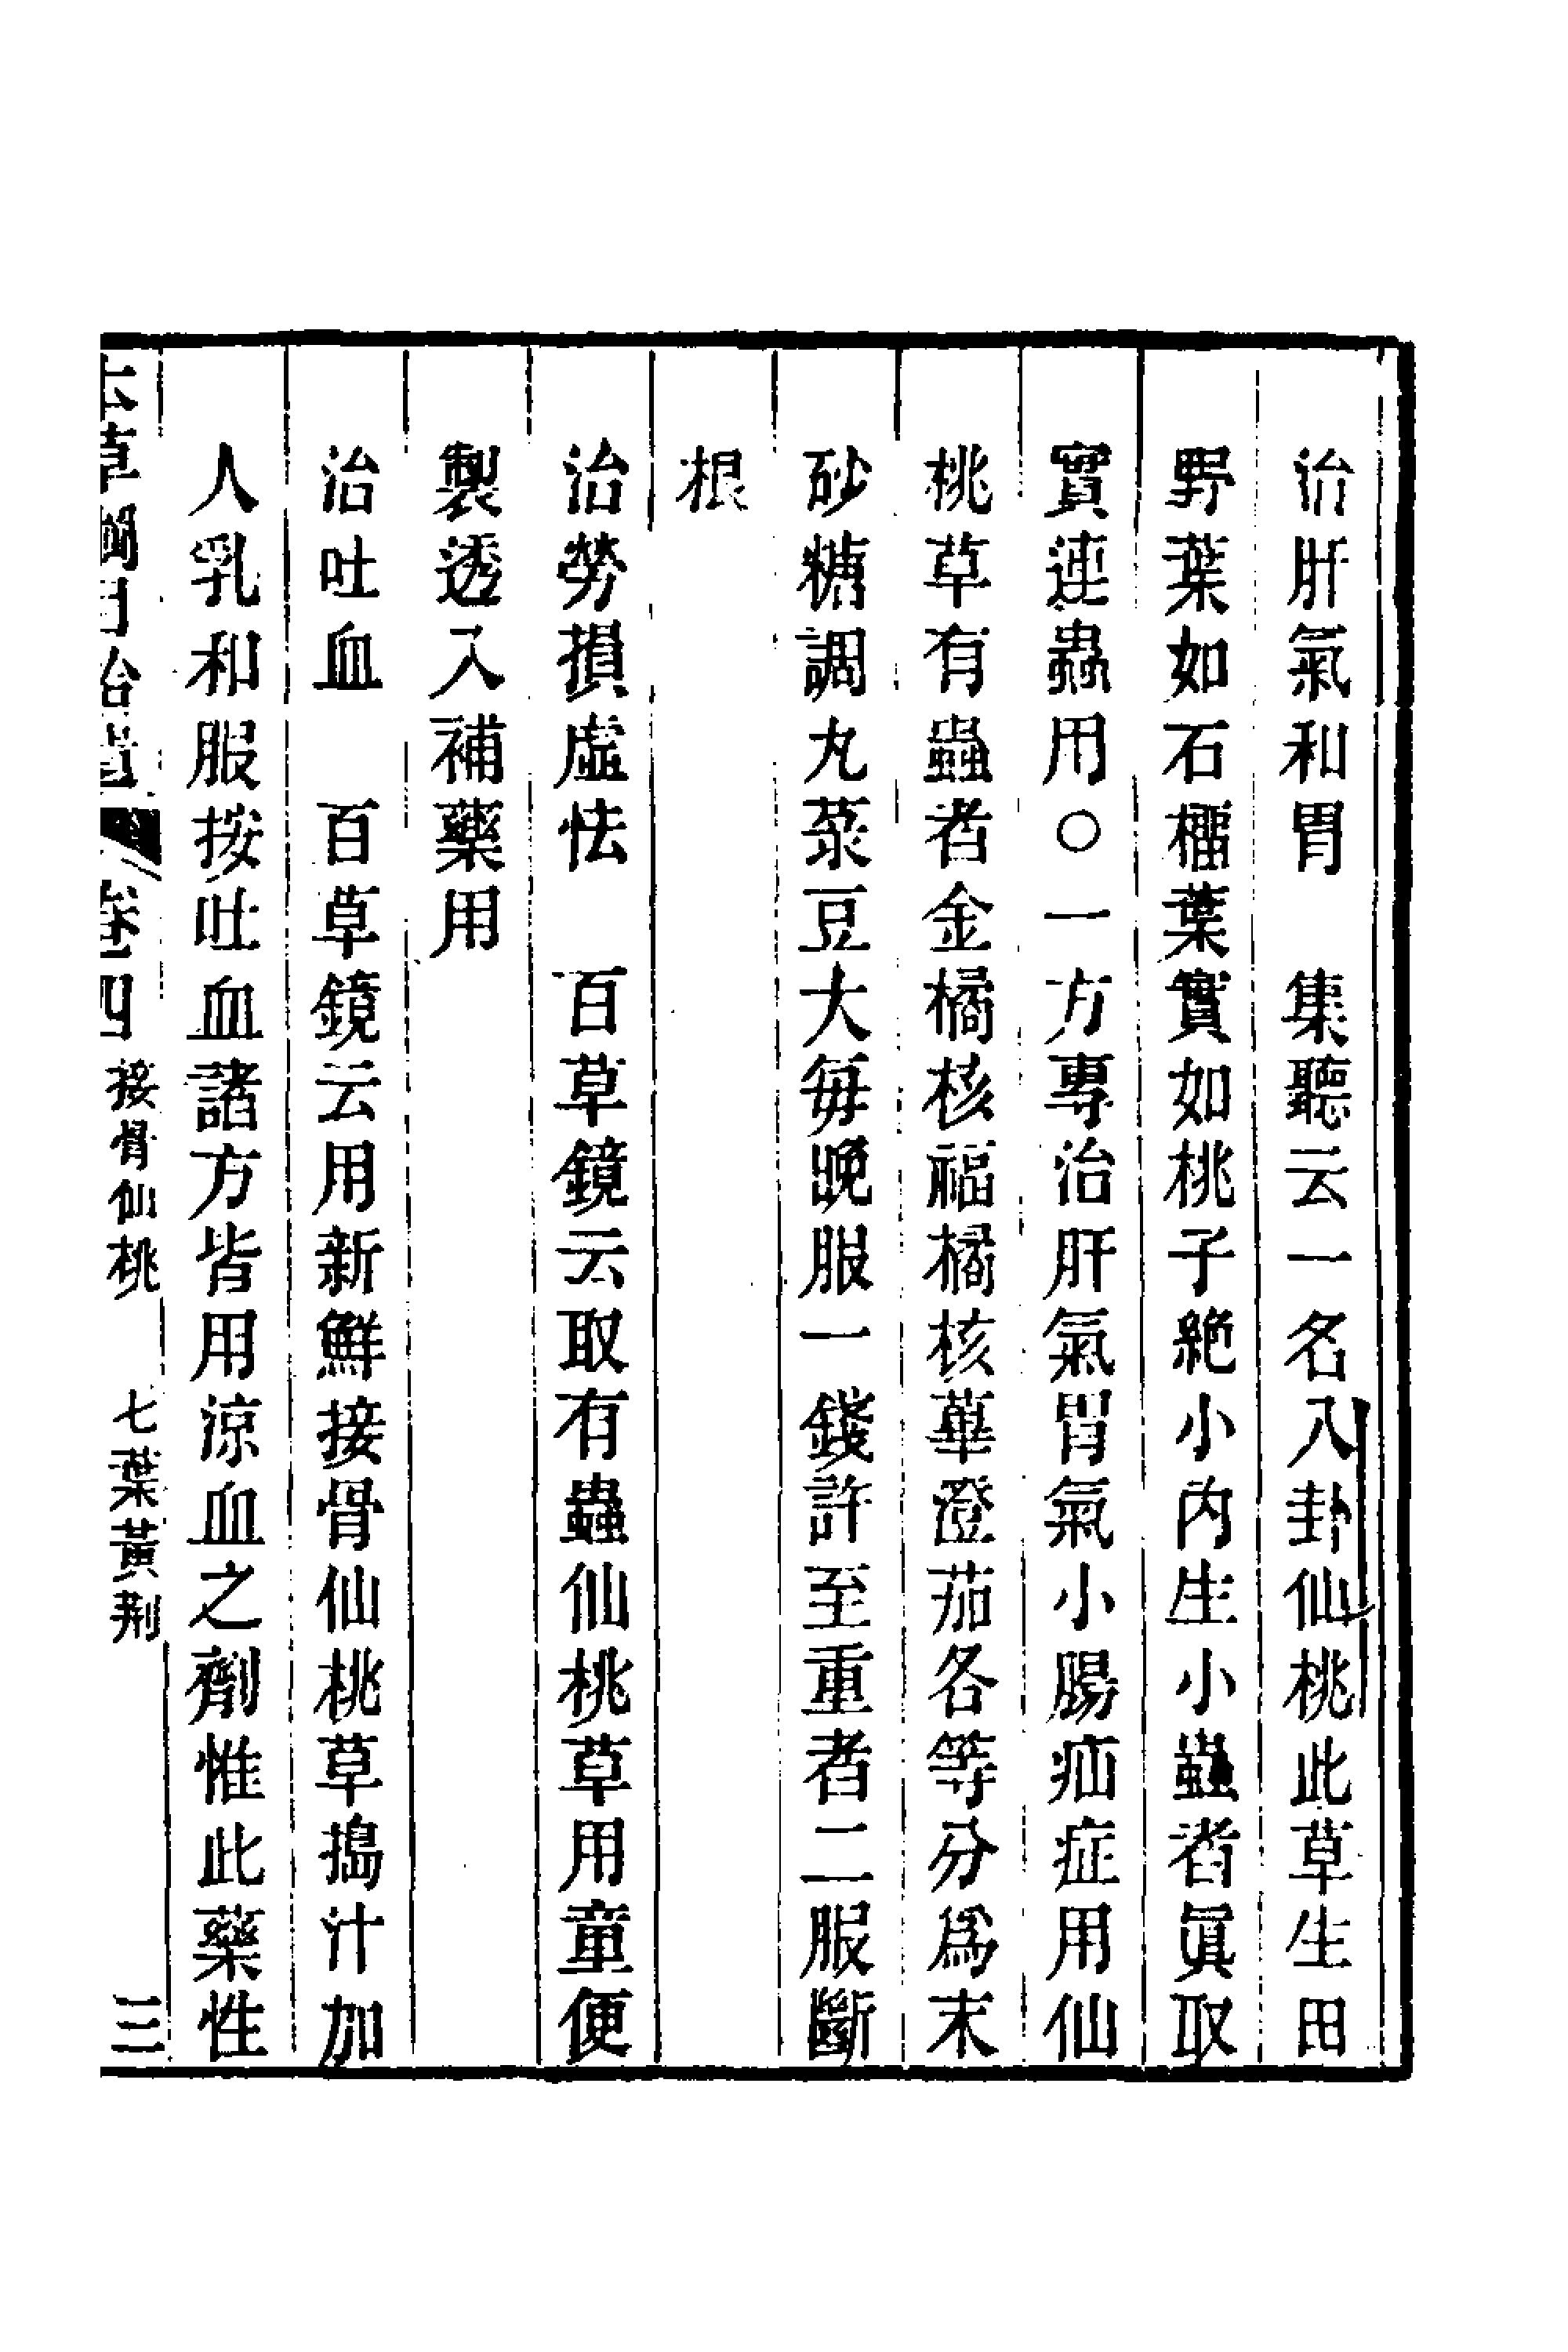 治肝氣和胃　集聽云一名八卦仙桃此草生田
野葉如石橊葉實如桃子絶小內生小蟲者眞取
實連蟲用○一方專治肝氣胃氣小腸疝症用仙
桃草有蟲者金橘核福橘核蓽澄茄各等分爲末
砂糖調丸菉豆大每晚服一錢許至重者二服斷
根
治勞損虛怯　百草鏡云取有蟲仙桃草用童便
製透入補藥用
治吐血　百草鏡云用新鮮接骨仙桃草搗汁加
人乳和服按吐血諸方皆用涼血之劑惟此藥性
本草綱目拾遺　卷四　接骨仙桃　七葉黃荆　三